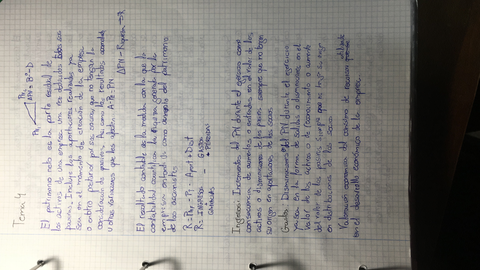 Tema 4
PN₁
PN₀ ΔPN = Bº - D
El patrimonio neto es la parte residual de
los activos de una empresa una vez deducidos todos sus
pasivos. Incluye las aportaciones realizadas, ya
sea en el momento de creación de la empresa
u otros posteriores por sus socios que no tengan la
consideración de pasivos, así como los resultados acumulados
u otras variaciones que les afecte. A-Pº=PN
El resultado contable es la medida con la que la
contabilidad cuantifica la riqueza generada por la
empresa en un período como aumento del patrimonio
de los accionistas
R = PN₁ - P₀ - Apori + Dist
R = Ingresos - Gastos
+ Ganancias - Pérdidas
Ingresos: Incrementos del PN durante el ejercicio como
consecuencia de aumentos o entradas en el valor de los
activos o disminuciones de los pasivos siempre que no tenga
su origen en aportaciones de los socios.
Gastos: Disminuciones del PN durante el ejercicio,
ya sea en la forma de salidas o disminuciones en el
valor de los activos o de reconocimiento o aumento
del valor de los pasivos siempre que no tenga su origen
en distribuciones de los socios
Valoración económica del consumo de recursos
en el desarrollo continuo de la empresa.